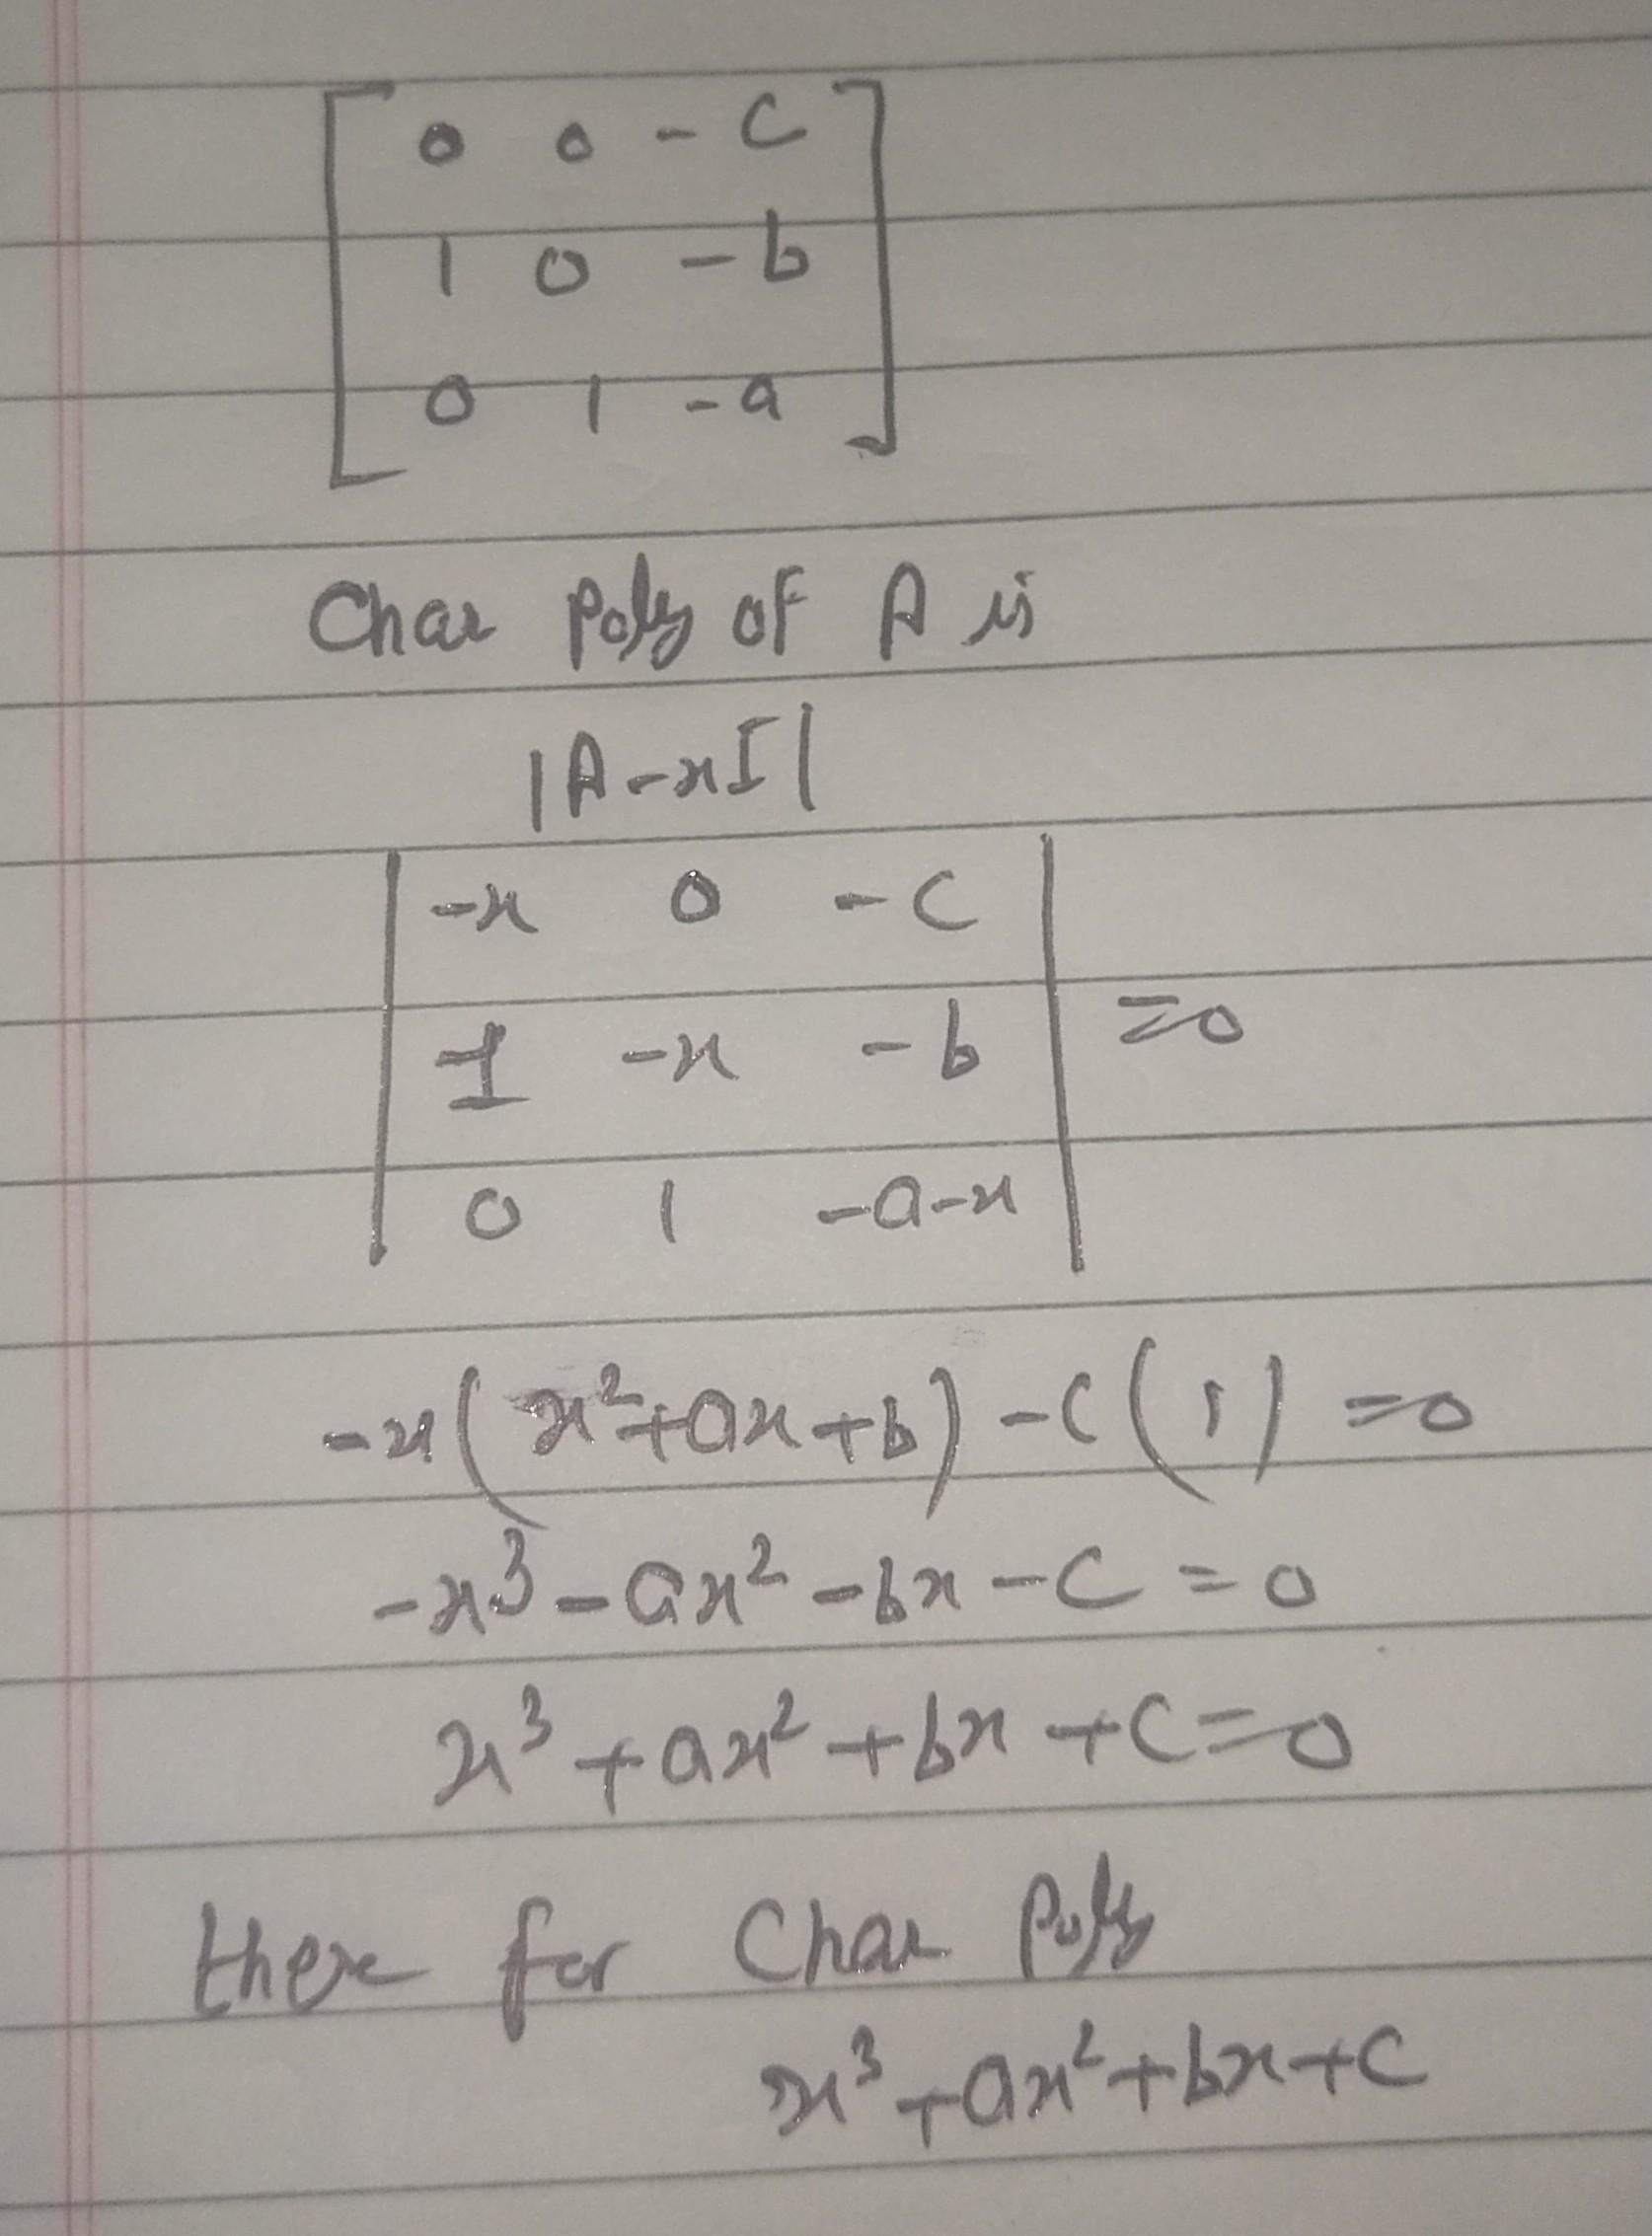 0 0 -c
1 0 -b
0 1 -a
Char Poly of A is
|A-xI|
-x 0 -c
1 -x -b =0
0 1 -a-x
-x(x²+ax+b)-c(1)=0
-x³-ax²-bx-c=0
x³+ax²+bx+c=0
there for Char Poly
x³+ax²+bx+c